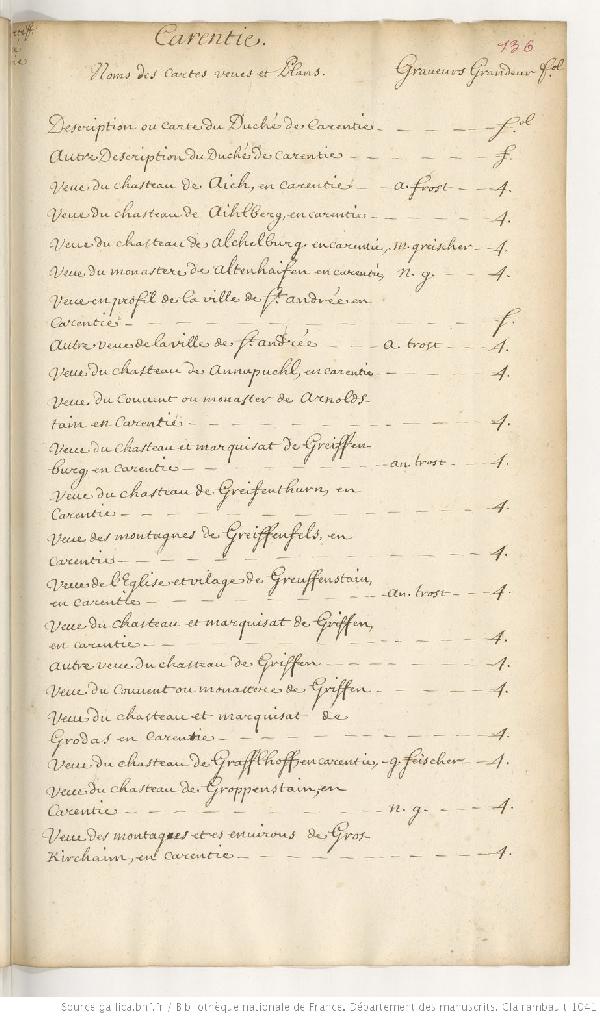 Carentie.
136
Noms des cartes veues et Plans. Graveurs Grandeur fol
Description ou carte du Duché de Carentie — — — — fol
Autre Description du Duché de Carentie — — — — f.
Veue du chasteau de Aich, en carentie — a. frost — 4.
Veue du chasteau de Aihlberg, en carentie — — — — 4.
Veue du chasteau de Alchelburg en carentie, m. greischer — 4.
Veue du monastere de Altenhaifen en carentie, n. g. — — 4.
Veue en profil de la ville de St. andrée en
Carentie — — — — f.
Autre veue de la ville de St andrée — — a. trost — 4.
Veue du chasteau de Annapuchl, en carentie — — — 4.
Veue du Couvent ou monaster de Arnolds-
tain en Carentie — — — — 4.
Veue du Chasteau et marquisat de Greiffen-
burg, en carentie — — — — an. trost — 4.
Veue du chasteau de Greifenthurn, en
Carentie — — — — 4.
Veue des montagnes de Greiffenfels, en
Carentie — — — — 4.
Veue de l'Eglise et vilage de Greuffenstain,
en carentie — — — — an. trost — 4.
Veue du chasteau et marquisat de Griffen,
en carentie — — — — 4.
autre veue du chasteau de Griffen — — — — 4.
Veue du Couvent ou monastere de Griffen — — — 4.
Veue du chasteau et marquisat de
Grodas en carentie — — — — 4.
Veue du chasteau de Grafflhoff en carentie, — g. feischer — 4.
Veue du chasteau de Groppenstain, en
Carentie — — — — n. g. — — 4.
Veue des montagnes et es environs de Gros
Kirchaim, en carentie — — — — 4.
Source gallica.bnf.fr / Bibliothèque nationale de France. Département des manuscrits. Clairambault 1041